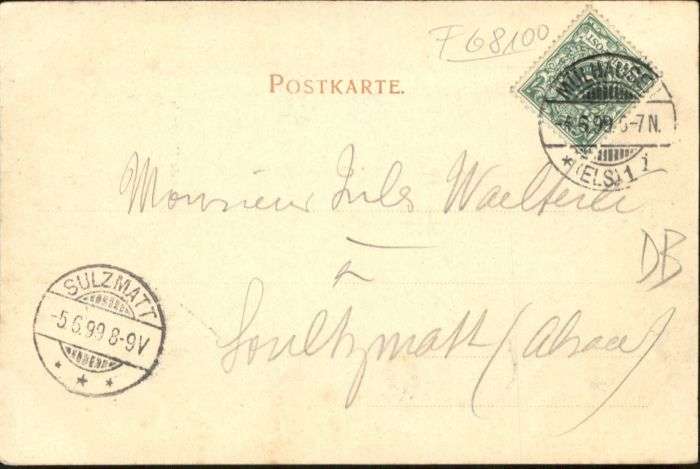 F 68100
POSTKARTE.
MÜLHAUSEN
-4.6.99.6-7N.
* (ELS) 1 i
Monsieur Jules Waelterlé
à
DB
Soultzmatt (Alsace)
SULZMATT
-5.6.99 8-9V
* * *